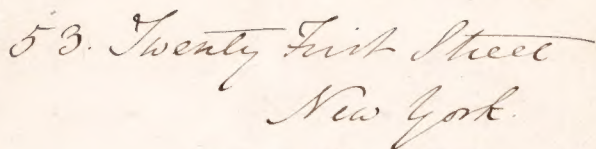 53. Twenty First Street
New York.